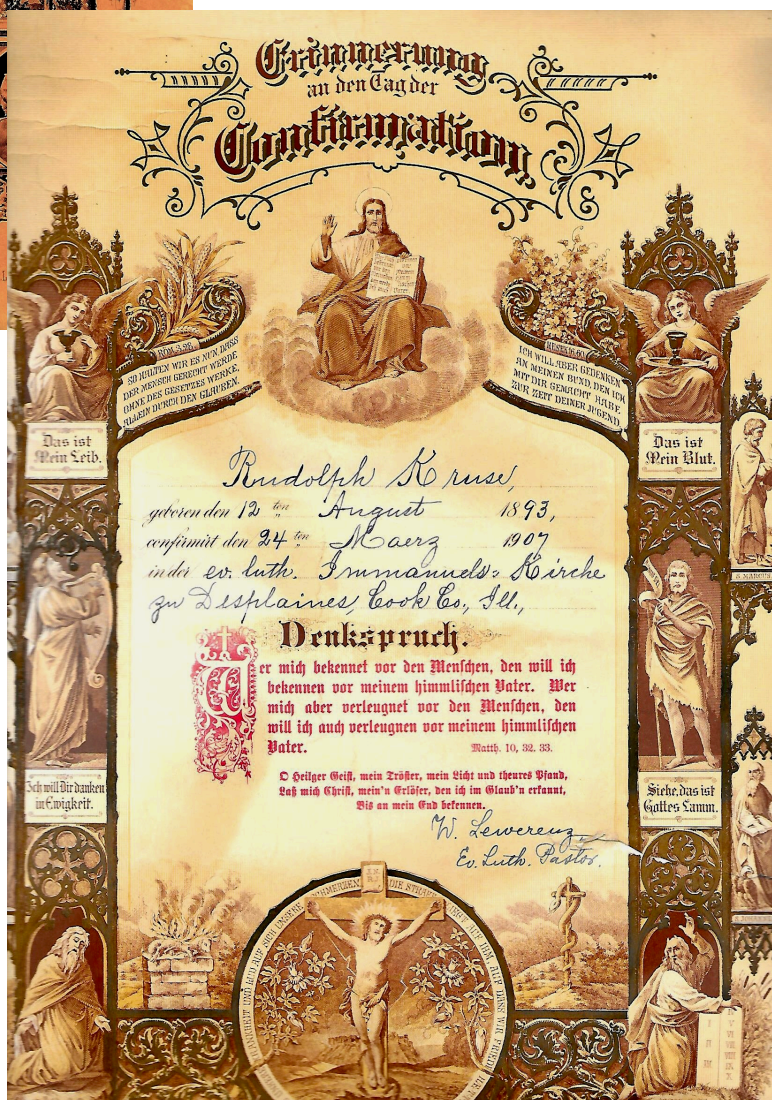 Erinnerung
an den Tag der
Confirmation
RÖM. 3. 28.
SO HALTEN WIR ES NUN, DASS
DER MENSCH GERECHT WERDE
OHNE DES GESETZES WERKE,
ALLEIN DURCH DEN GLAUBEN.
HESEK. 16. 60.
ICH WILL ABER GEDENKEN
AN MEINEN BUND, DEN ICH
MIT DIR GEMACHT HABE
ZUR ZEIT DEINER JUGEND.
Das ist
Mein Leib.
Das ist
Mein Blut.
Rudolph Kruse,
geboren den 12 ten August 1893,
confirmirt den 24 ten Maerz 1907
in der ev. luth. Immanuels-Kirche
zu Desplaines, Cook Co., Ill.,
Denkspruch.
Wer mich bekennet vor den Menschen, den will ich
bekennen vor meinem himmlischen Vater. Wer
mich aber verleugnet vor den Menschen, den
will ich auch verleugnen vor meinem himmlischen
Vater. Matth. 10, 32. 33.
O Heilger Geist, mein Tröster, mein Licht und theures Pfand,
Laß mich Christ, mein'n Erlöser, den ich im Glaub'n erkannt,
Bis an mein End bekennen.
W. Lewerenz
Ev. Luth. Pastor.
Ich will Dir danken
in Ewigkeit.
Siehe, das ist
Gottes Lamm.
S. MARCUS
UND LUD AUF SICH UNSERE SCHMERZEN. DIE STRAFE LIEGT AUF IHM, AUF DASS WIR FRIEDE